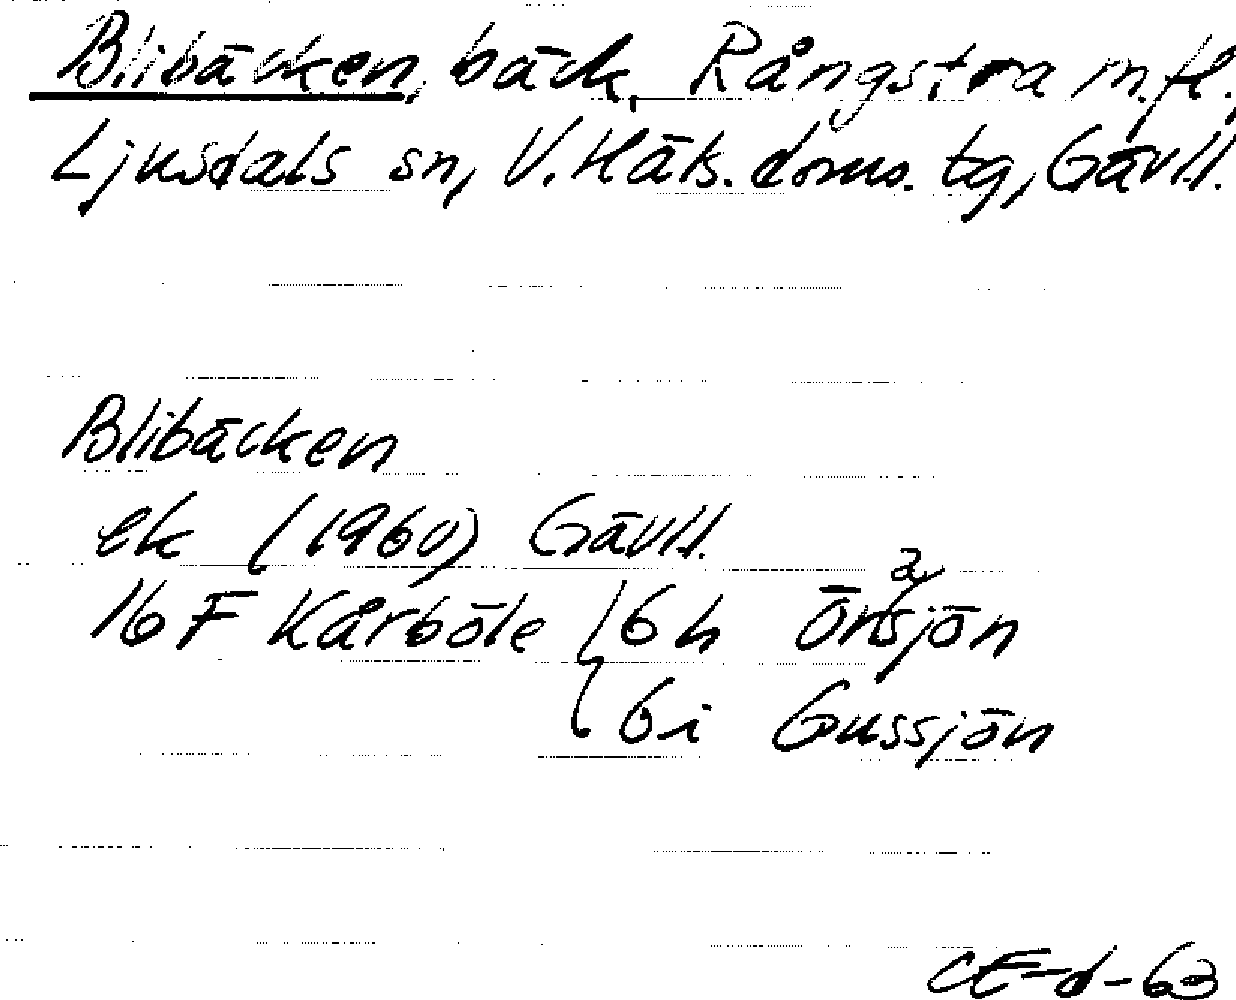 Blibäcken, bäck, Rångstra m.fl.,
Ljusdals sn, V. Häls. doms. tg, Gävl.l.
Blibäcken
ek (1960) Gävl.l.
16 F Kårböle 6 h Örasjön
6 i Gussjön
CE-d-63